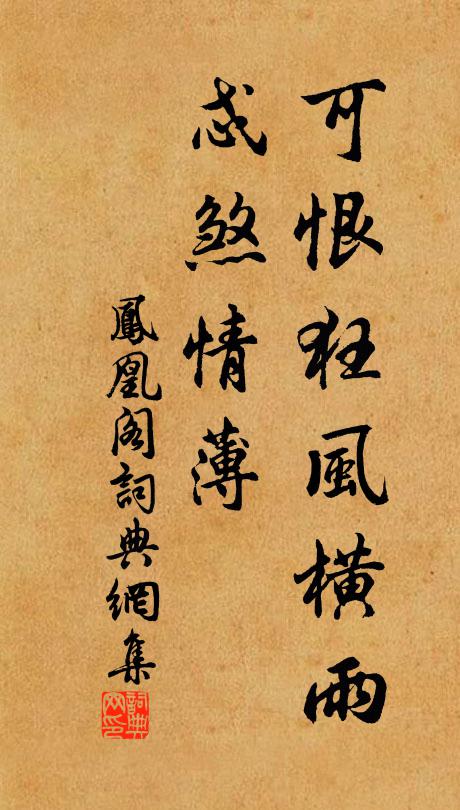 可恨狂風橫雨
忒煞情薄
鳳凰閣詞典網集
詞典
網印